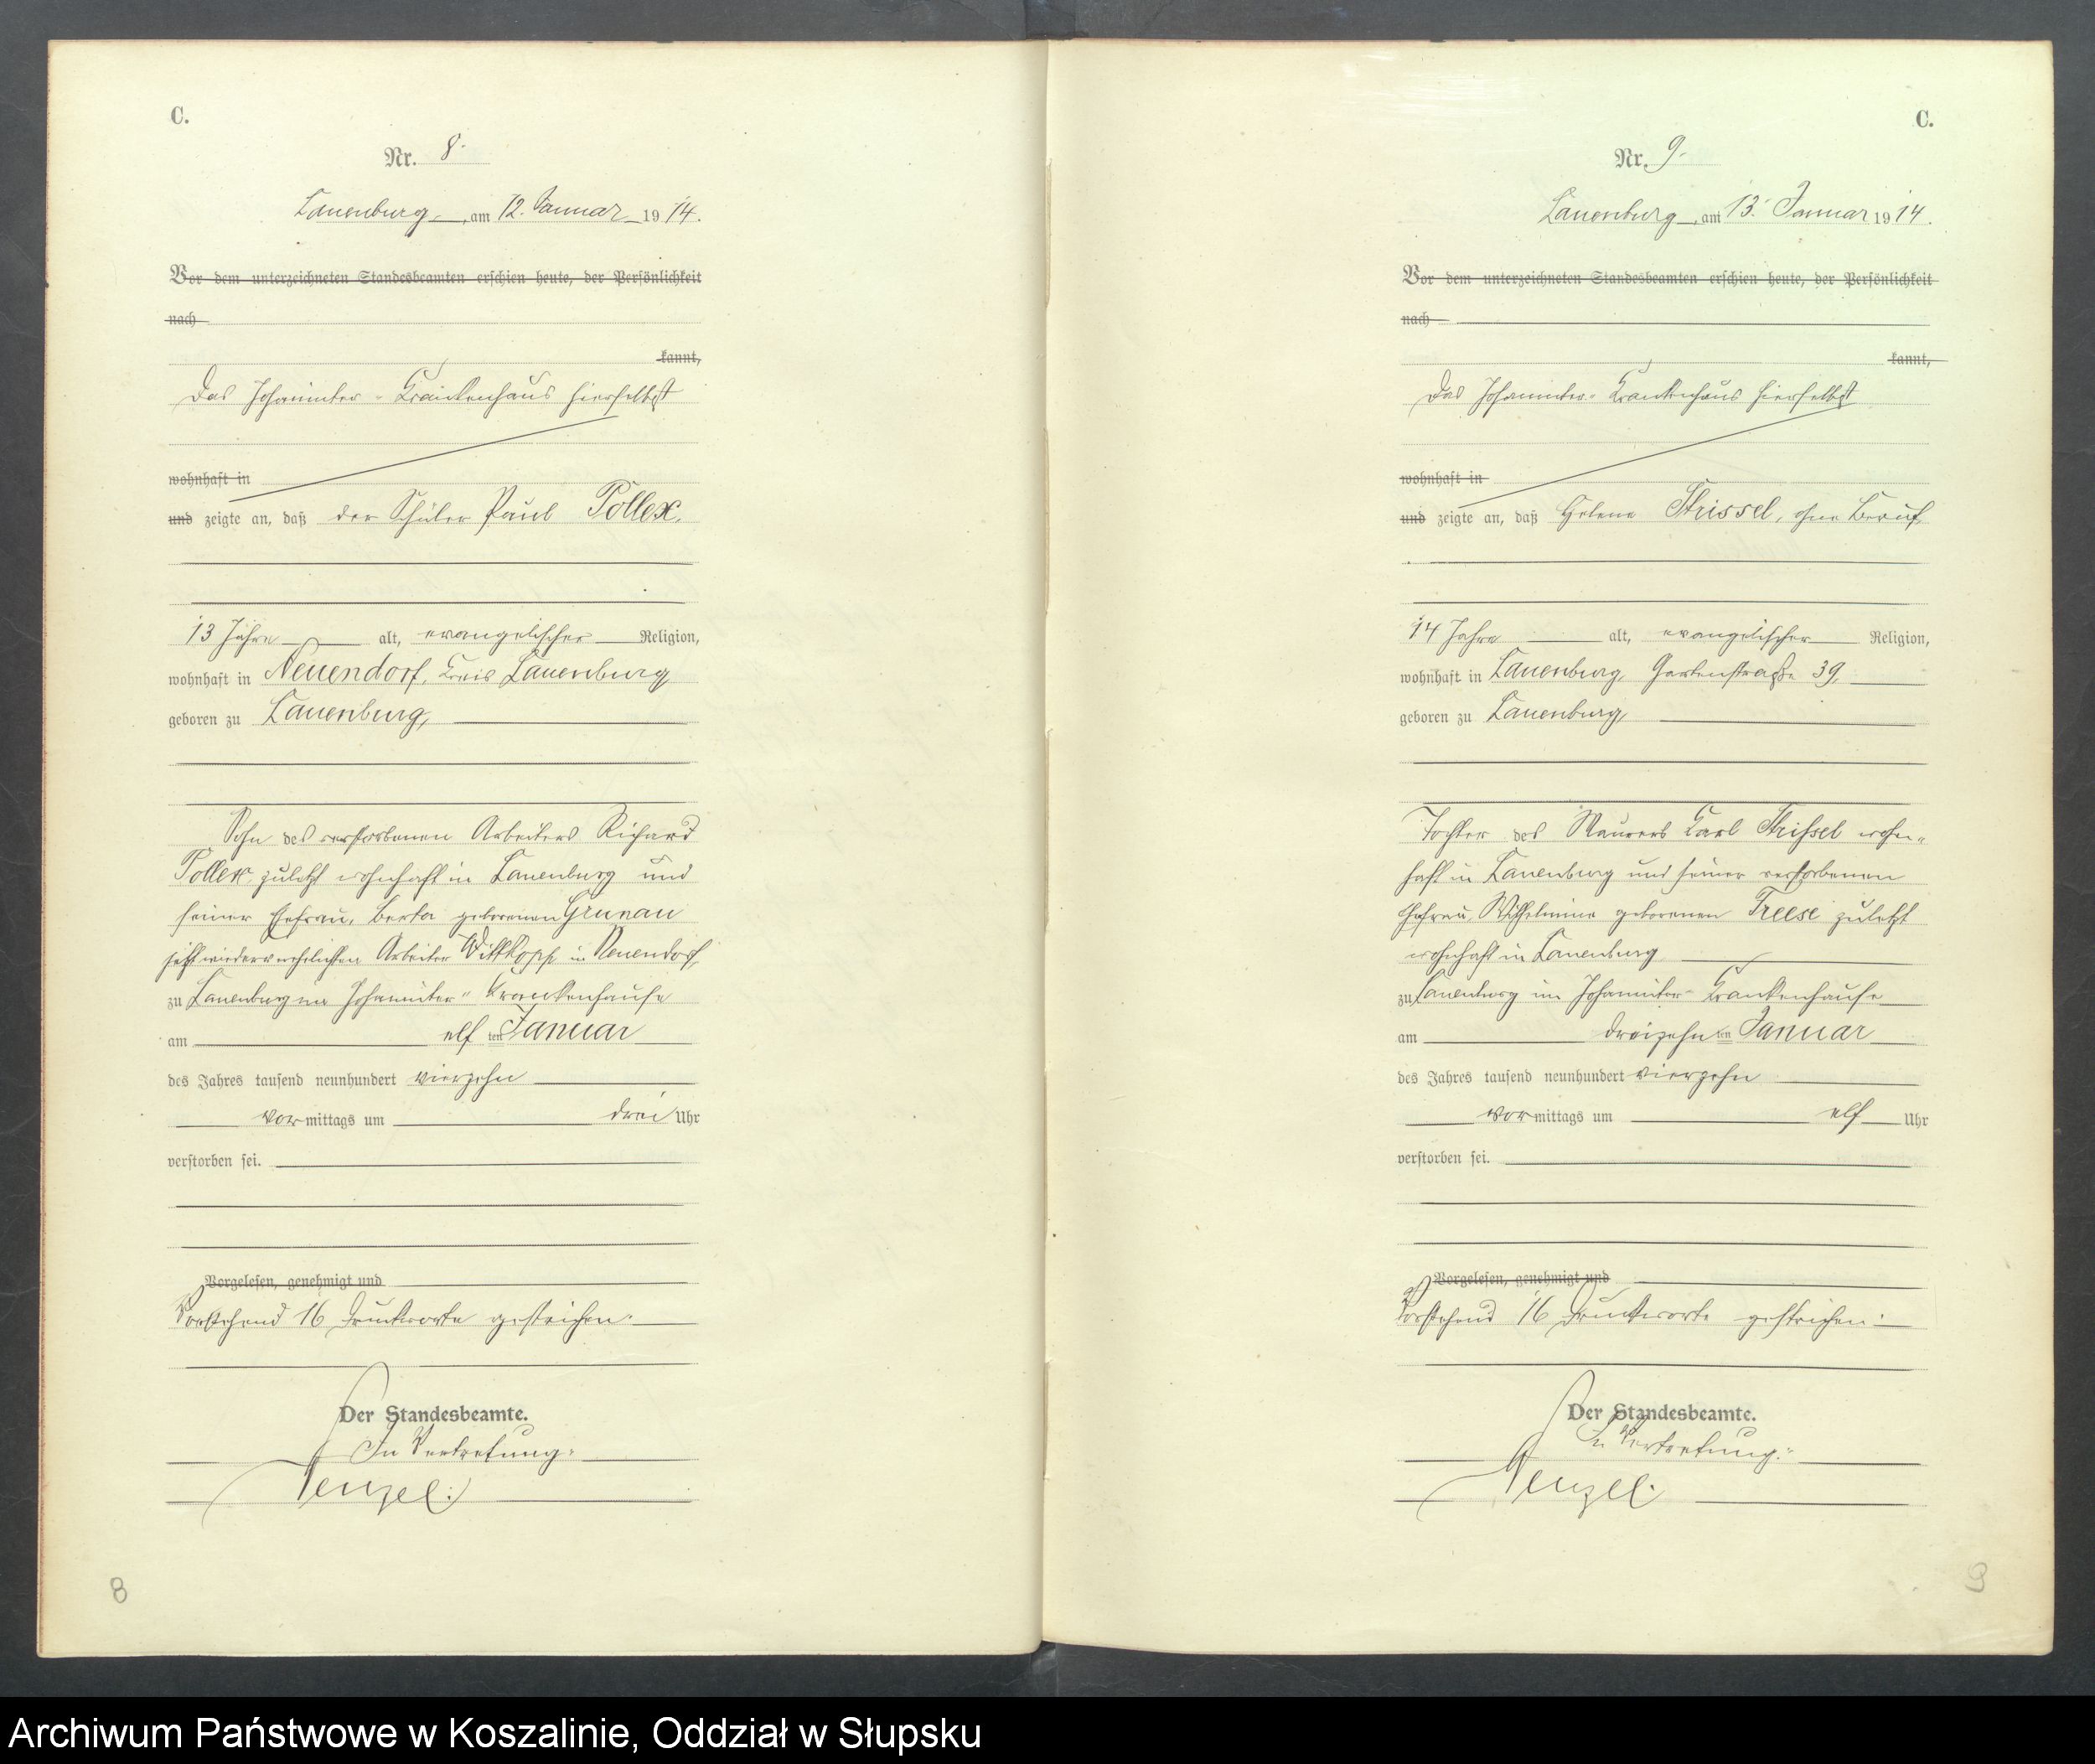 C.
Nr. 8.
Lauenburg, am 12. Januar 1914.
Vor dem unterzeichneten Standesbeamten erschien heute, der Persönlichkeit
nach
kannt,
Das Johanniter-Krankenhaus hierselbst
wohnhaft in
und zeigte an, daß der Schüler Paul Pollex,
13 Jahre alt, evangelischer Religion,
wohnhaft in Neuendorf, Kreis Lauenburg
geboren zu Lauenburg,
Sohn des verstorbenen Arbeiters Richard
Pollex, zuletzt wohnhaft in Lauenburg und
seiner Ehefrau, Berta geborenen Grunau
jetzt wiederverehelichten Arbeiter Wittkopp in Neuendorf,
zu Lauenburg im Johanniter-Krankenhause
am elf ten Januar
des Jahres tausend neunhundert vierzehn
vormittags um drei Uhr
verstorben sei.
Vorgelesen, genehmigt und
Vorstehend 16 Druckworte gestrichen.
Der Standesbeamte.
In Vertretung:
Wenzel.
8
C.
Nr. 9.
Lauenburg, am 13. Januar 1914.
Vor dem unterzeichneten Standesbeamten erschien heute, der Persönlichkeit
nach
kannt,
Das Johanniter-Krankenhaus hierselbst
wohnhaft in
und zeigte an, daß Helene Strissel, ohne Beruf,
14 Jahre alt, evangelischer Religion,
wohnhaft in Lauenburg, Gartenstraße 39,
geboren zu Lauenburg,
Tochter des Maurers Karl Strissel wohn-
haft in Lauenburg und seiner verstorbenen
Ehefrau, Wilhelmine geborenen Treese zuletzt
wohnhaft in Lauenburg
zu Lauenburg im Johanniter-Krankenhause
am dreizehn ten Januar
des Jahres tausend neunhundert vierzehn
vormittags um elf Uhr
verstorben sei.
Vorgelesen, genehmigt und
Vorstehend 16 Druckworte gestrichen.
Der Standesbeamte.
In Vertretung:
Wenzel.
9
Archiwum Państwowe w Koszalinie, Oddział w Słupsku